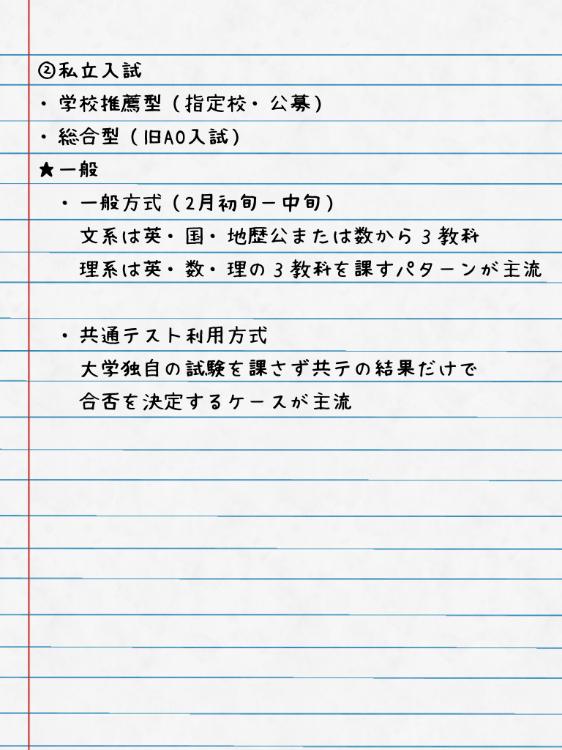 ②私立入試
・学校推薦型（指定校・公募）
・総合型（旧AO入試）
★一般
・一般方式（2月初旬－中旬）
文系は英・国・地歴公または数から3教科
理系は英・数・理の3教科を課すパターンが主流
・共通テスト利用方式
大学独自の試験を課さず共テの結果だけで
合否を決定するケースが主流